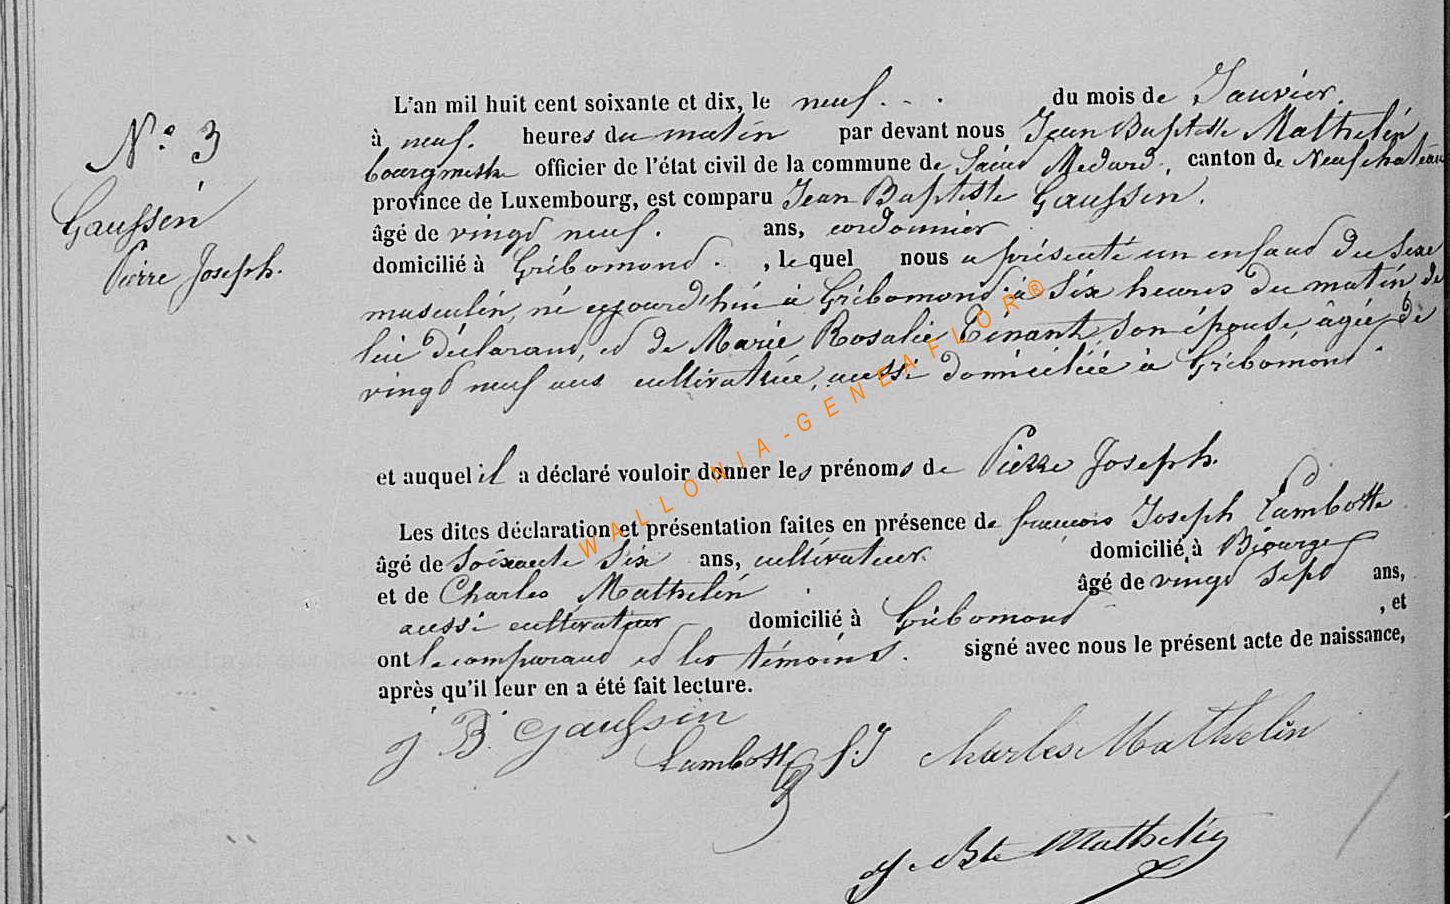 N.º 3
Gaussin
Pierre Joseph.
L'an mil huit cent soixante et dix, le neuf du mois de Janvier.
à neuf. heures du matin par devant nous Jean Baptiste Mathelin
bourgmestre officier de l'état civil de la commune de Saint Medard, canton de Neufchateau
province de Luxembourg, est comparu Jean Baptiste Gaussin.
âgé de vingt neuf. ans, cordonnier
domicilié à Gribomont. , lequel nous a présenté un enfant du sexe
masculin, né aujourd'hui à Gribomont à six heures du matin de
lui déclarant, et de Marie Rosalie Tinant, son épouse, âgée de
vingt neuf ans cultivatrice, aussi domiciliée à Gribomont.
et auquel il a déclaré vouloir donner les prénoms de Pierre Joseph.
Les dites déclaration et présentation faites en présence de françois Joseph Lambotte
âgé de Soixante Six ans, cultivateur domicilié à Biourge
et de Charles Mathelin âgé de vingt sept ans,
aussi cultivateur domicilié à Gribomont , et
ont le comparant et les témoins. signé avec nous le présent acte de naissance,
après qu'il leur en a été fait lecture.
J B. Gaussin
Lambotte f. J Charles Mathelin
J Bte Mathelin
WALLONIA-GENEAFLOR®